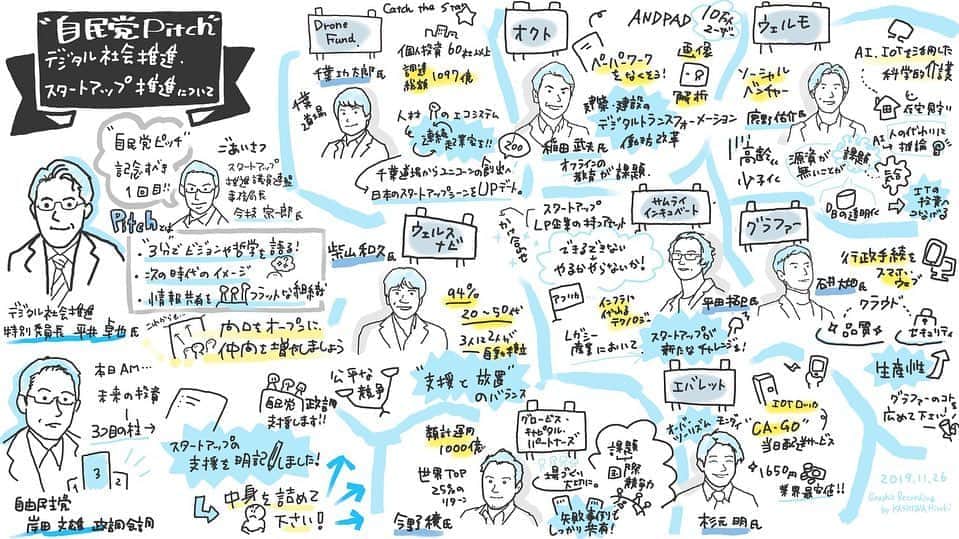 "自民党Pitch"
デジタル社会推進.
スタートアップ推進について
"自民党ピッチ"
記念すべき
1回目!!
ごあいさつ
スタートアップ
推進議員連盟
事務局長
今枝宗一郎氏
Pitchとは
・"3分でビジョンや哲学を語る!
・次の時代のイメージ
・情報共有を
フラットな組織
デジタル社会推進
特別委員長 平井卓也氏
これからも…
門戸をオープンに、
仲間を増やしましょう
本日AM…
未来の投資
3つ目の柱→
3
自由民主党
岸田文雄 政調会長
スタートアップの
支援を明記しました!
中身を詰めて
下さい!
自民党 政調
支援します!!
公平な
競争
Drone
Fund.
千葉功太郎氏
千葉
道場
Catch the Star
個人投資60社以上
調達
総額 1097億
人材 のエコシステム
連続
起業家を!!
千葉道場からユニコーンの創出へ
日本のスタートアップシーンをUPデート。
オクト
稲田武夫氏
ANDPAD
10万人
ユーザー
ペーパーワーク
をなくそう!
画像
解析
建築・建設の
デジタルトランスフォーメーション
働き方改革
200
オフラインの
教育が課題.
ウェルモ
ソーシャル
ベンチャー
鹿野佑介氏
AI.IOTを活用した
科学的介護
在宅
AI
高齢
少子化
資源が
無いことが
課題
DBの透明化
ITの
投資へ
つなげる
ウェルス
ナビ
柴山和久氏
94%
20〜50代
3人に2人が
"支援と放置"
のバランス
サムライ
インキュベート
スタートアップ
LP企業の持つアセット
かけ合わせ
できるできない
やるかやらないか!
アフリカ
インフラに
代わる
テクノロジー
レガシー
産業において.
平田拓己氏
スタートアップが
新たなチャレンジを!
グラファー
石井大地氏
行政手続を
スマホ・
ウェブ
クラウド
品質
セキュリティ
生産性
グラファーのコトを
広めて下さい!
グロービス
キャピタル・
パートナーズ
累計運用
1000億
世界TOP
25%の
リターン
今野穣氏
場づくり
大切に。
課題
国際
競争力
失敗事例も
しっかり共有!
エバレット
オーバー
ツーリズム
杉元明氏
"CA-GO"
当日配送サービス
1650円
業界最安値!!
2019.11.26
Graphic Recording